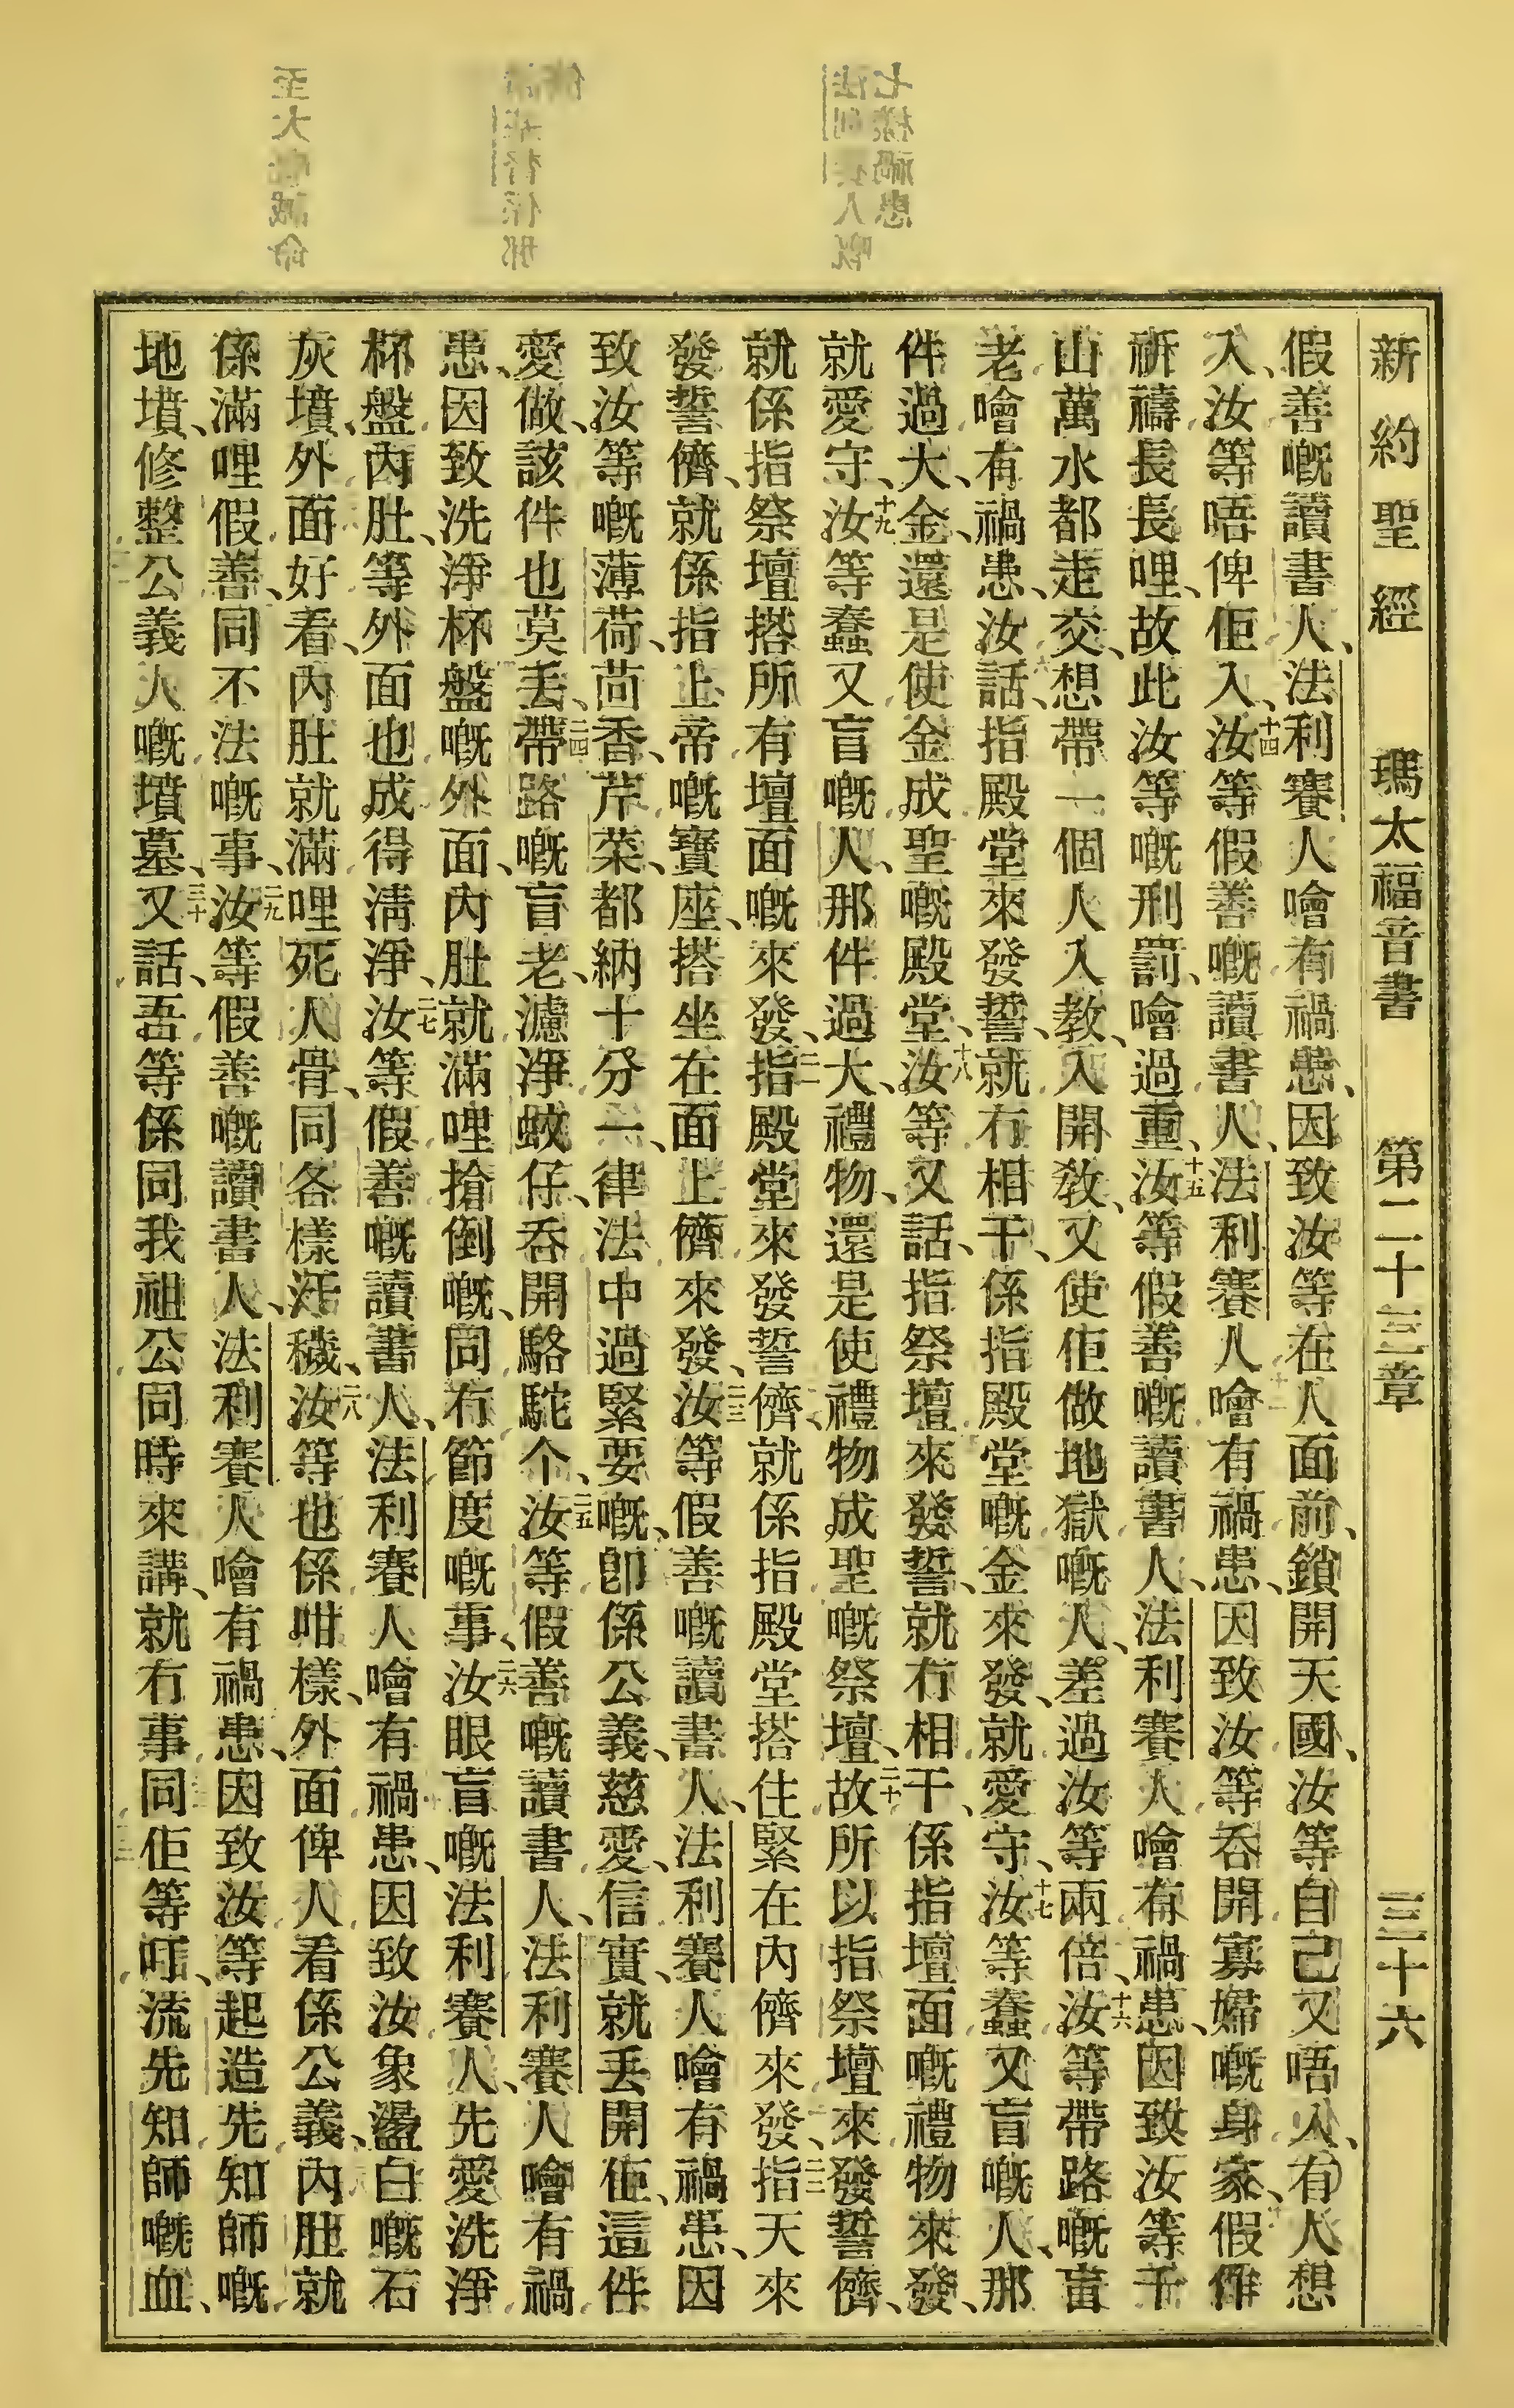 新約聖經　瑪太福音書　第二十三章　三十六
假善嘅讀書人、法利賽人噲有禍患、因致汝等在人面前、鎖開天國、汝等自己又唔入、有人想
入、汝等唔俾佢入、十四汝等假善嘅讀書人、法利賽人噲有禍患、因致汝等吞開寡婦嘅身家、假作
祈禱長長哩、故此汝等嘅刑罰、噲過重、十五汝等假善嘅讀書人、法利賽人噲有禍患、因致汝等千
山萬水都走交、想帶一個人入教、入開教、又使佢做地獄嘅人、差過汝等兩倍、十六汝等帶路嘅盲
老噲有禍患、汝話、指殿堂來發誓、就冇相干、係指殿堂嘅金來發、就愛守、十七汝等蠢又盲嘅人、那
件過大、金、還是使金成聖嘅殿堂、十八汝等又話、指祭壇來發誓、就冇相干、係指壇面嘅禮物來發、
就愛守、十九汝等蠢又盲嘅人、那件過大、禮物、還是使禮物成聖嘅祭壇、二十故所以指祭壇來發誓儕、
就係指祭壇搭所有壇面嘅來發、二一指殿堂來發誓儕、就係指殿堂搭住緊在內儕來發、二二指天來
發誓儕、就係指上帝嘅寶座、搭坐在面上儕來發、二三汝等假善嘅讀書人、法利賽人噲有禍患、因
致汝等嘅薄荷、茴香、芹菜、都納十分一、律法中過緊要嘅、卽係公義、慈愛、信實、就丟開佢、這件
愛做、該件也莫丟、二四帶路嘅盲老、濾淨蚊仔、吞開駱駝个、二五汝等假善嘅讀書人、法利賽人噲有禍
患、因致洗淨杯盤嘅外面、內肚就滿哩搶倒嘅、同冇節度嘅事、二六汝眼盲嘅法利賽人、先愛洗淨
杯盤內肚、等外面也成得淸淨、二七汝等假善嘅讀書人、法利賽人噲有禍患、因致汝象盪白嘅石
灰墳、外面好看、內肚就滿哩死人骨、同各樣汚穢、二八汝等也係咁樣、外面俾人看係公義、內肚就
係滿哩假善、同不法嘅事、二九汝等假善嘅讀書人、法利賽人噲有禍患、因致汝等起造先知師嘅
地墳、修整公義人嘅墳墓、三十又話、吾等係同我祖公同時來講、就冇事同佢等㕶、流先知師嘅血、